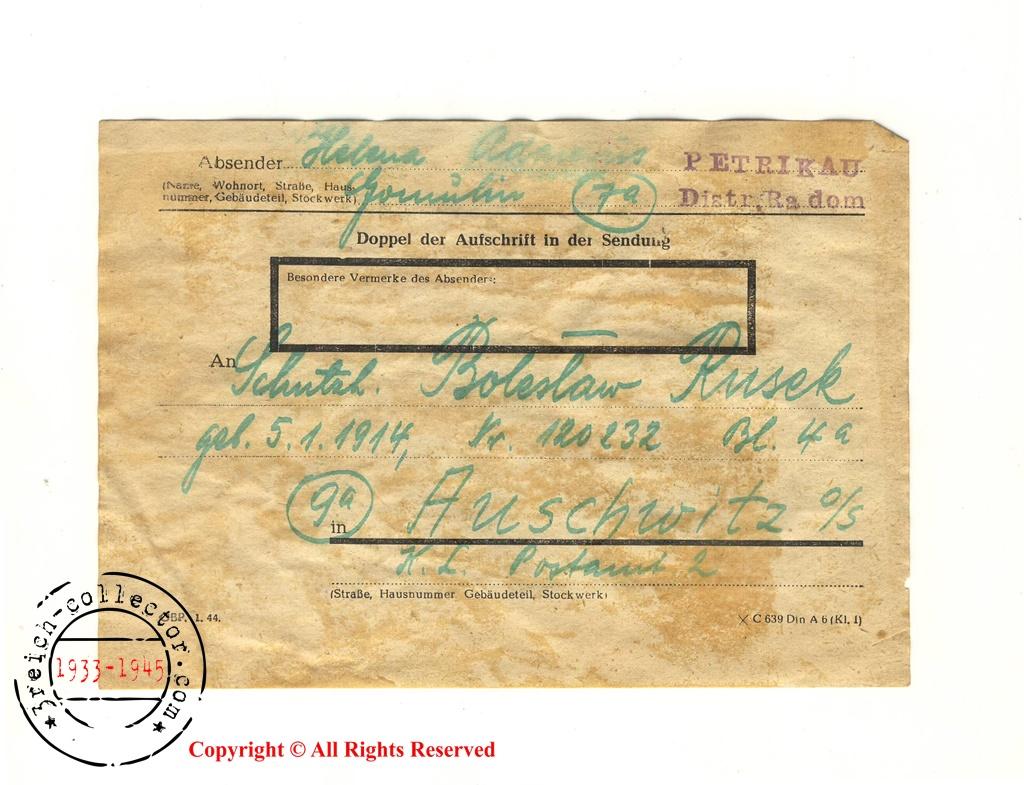 Absender Helena
PETRIKAU
(Name, Wohnort, Straße, Haus-
nummer, Gebäudeteil, Stockwerk)
Gomulin 7a
Distr. Radom
Doppel der Aufschrift in der Sendung
Besondere Vermerke des Absenders:
An Schutzh. Bolesław Rusek
geb. 5.1.1914, Nr. 120232 Bl. 4a
9a in Auschwitz O/S
K.L. Postamt 2
(Straße, Hausnummer Gebäudeteil, Stockwerk)
DBP. 1. 44.
C 639 Din A 6 (Kl. I)
3reich-collector.com
1933-1945
Copyright © All Rights Reserved